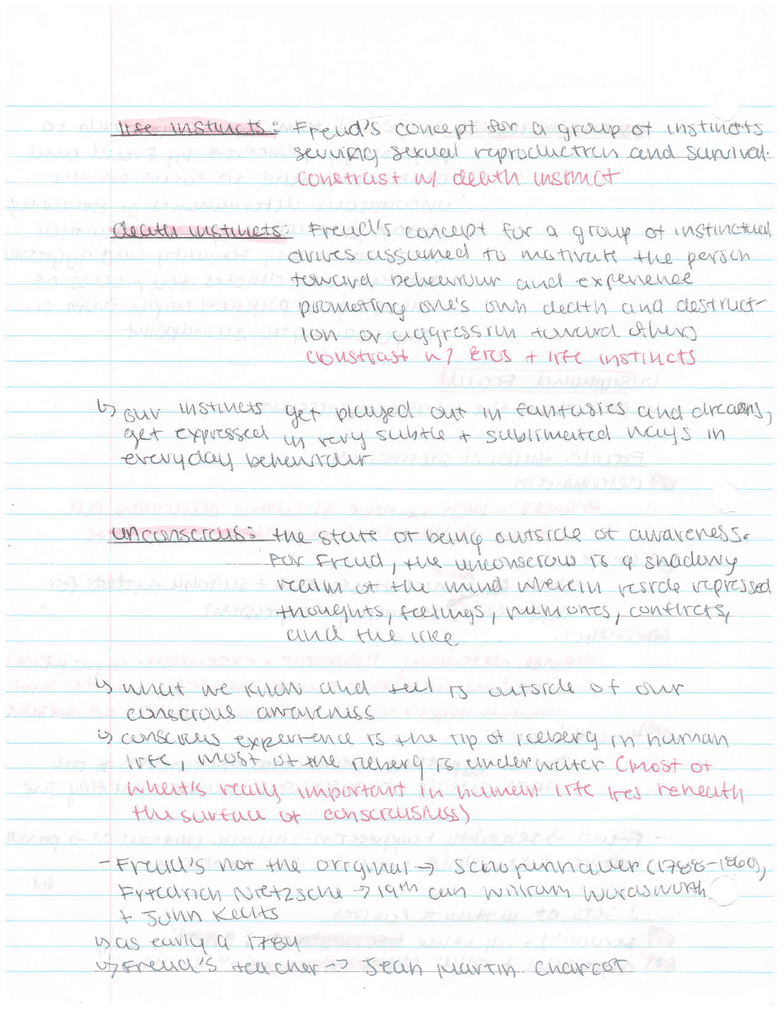 life instincts: Freud's concept for a group of instincts
serving sexual reproduction and survival.
constrast w/ death instinct
death instincts: Freud's concept for a group of instinctual
drives assumed to motivate the person
toward behaviour and experience
promoting one's own death and destruct-
ion or aggression toward others
constrast w/ Eros + life instincts
↳ our instincts get played out in fantasies and dreams,
get expressed in very subtle + sublimated ways in
everyday behaviour
unconscious: the state of being outside of awareness.
For Freud, the unconscious is a shadowy
realm of the mind wherein reside repressed
thoughts, feelings, memories, conflicts,
and the like
↳ what we know and feel is outside of our
conscious awareness
↳ conscious experience is the tip of iceberg in human
life, most of the iceberg is underwater (most of
what's really important in human life lies beneath
the surface of consciousness)
- Freud's not the original → Schopenhauer (1788-1860),
Friedrich Nietzsche → 19th cen William Wordsworth
+ John Keats
↳ as early a 1784
↳ Freud's teacher → Jean Martin Charcot